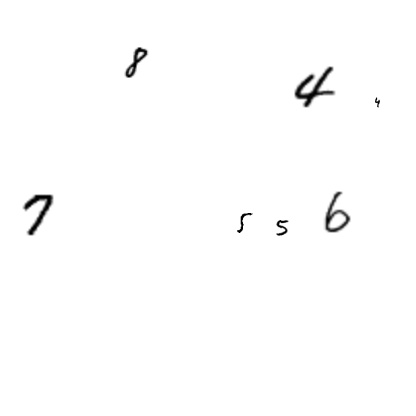 8 4 4
7 5 5 6